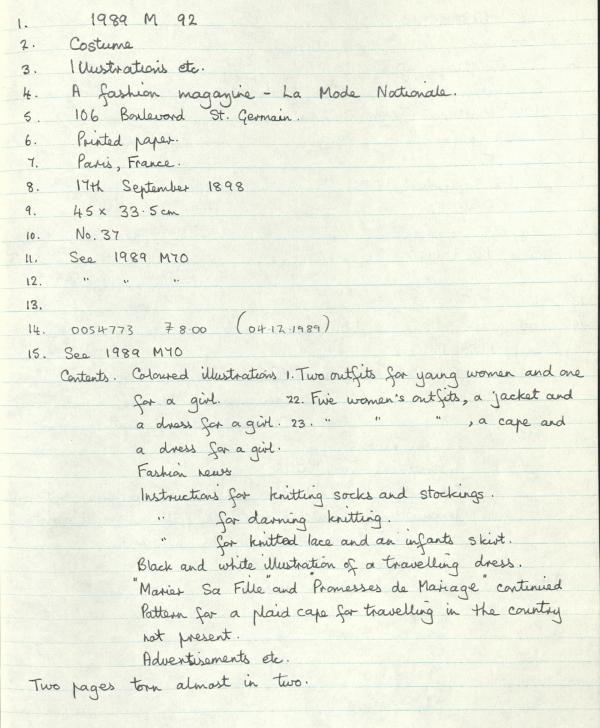 1. 1989 M 92
2. Costume
3. Illustrations etc.
4. A fashion magazine - La Mode Nationale.
5. 106 Boulevard St. Germain.
6. Printed paper.
7. Paris, France.
8. 17th September 1898
9. 45 x 33.5 cm
10. No. 37
11. See 1989 M70
12. " " "
13.
14. 0054773 78.00 (04.12.1989)
15. See 1989 M70
Contents. Coloured illustrations 1. Two outfits for young women and one
for a girl. 22. Five women's outfits, a jacket and
a dress for a girl. 23. " " " , a cape and
a dress for a girl.
Fashion news
Instructions for knitting socks and stockings.
" for darning knitting.
" for knitted lace and an infants skirt.
Black and white illustration of a travelling dress.
"Marier Sa Fille" and "Promesses de Mariage" continued
Pattern for a plaid cape for travelling in the country
not present.
Advertisements etc.
Two pages torn almost in two.